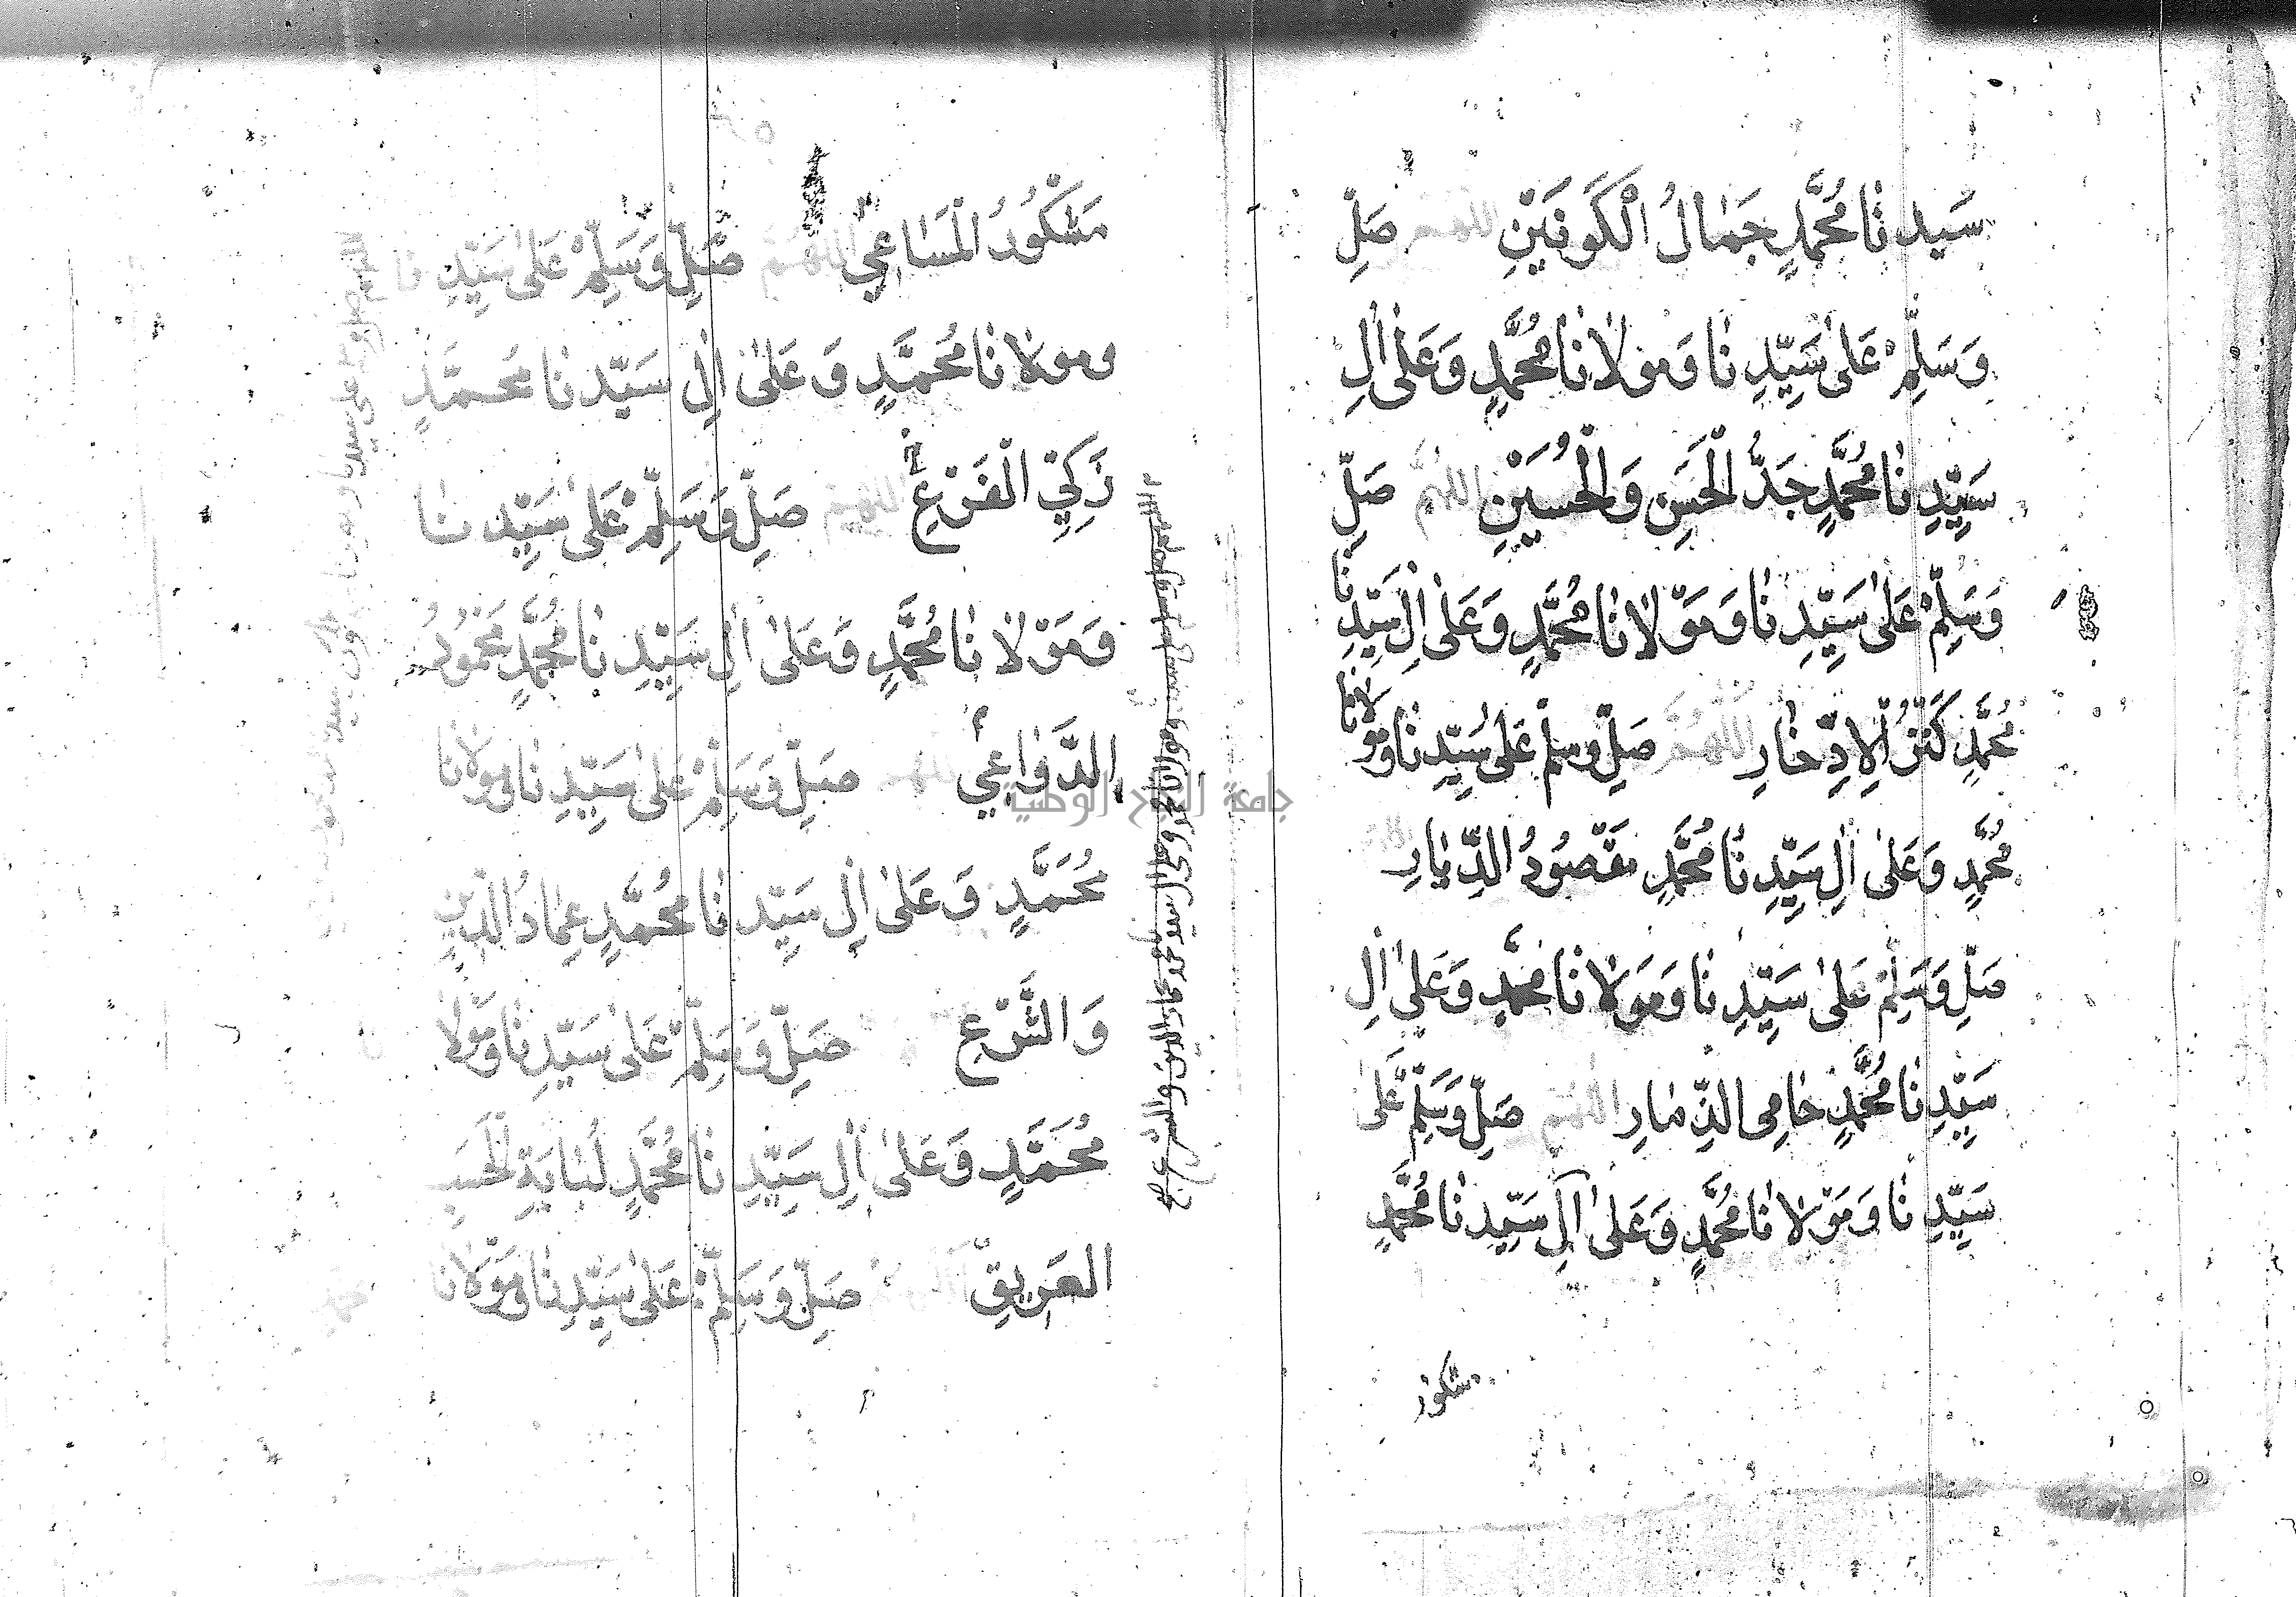 سَيِّدِنَا مُحَمَّدٍ جَمَالُ الْكَوْنَيْنِ اللهم صَلِّ
وَسَلِّمْ عَلَىٰ سَيِّدِنَا وَمَولَانَا مُحَمَّدٍ وَعَلَىٰ اٰلِ
سَيِّدِنَا مُحَمَّدٍ جَدُّ الْحَسَنِ وَالْحُسَيْنِ اللهُمَّ صَلِّ
وَسَلِّمْ عَلَىٰ سَيِّدِنَا وَمَوْلَانَا مُحَمَّدٍ وَعَلَىٰ اٰلِ سَيِّدِنَا
مُحَمَّدٍ كَنْزُ الْاِدِّخَارِ اللّٰهُمَّ صَلِّ وسلم عَلَىٰ سَيِّدِنَا وَمَولَانَا
مُحَمَّدٍ وَعَلَىٰ اٰلِ سَيِّدِنَا مُحَمَّدٍ مَقْصُودُ الدِّيَارِ اللهم
صَلِّ وَسَلِّمْ عَلَىٰ سَيِّدِنَا وَمَوَلَانَا مُحَمَّدٍ وَعَلَىٰ اٰلِ
سَيِّدِنَا مُحَمَّدٍ حَامِى الذِّمَارِ اللّٰهُمَّ صَلِّ وَسَلِّمْ عَلَىٰ
سَيِّدِنَا وَمَوْلَانَا مُحَمَّدٍ وَعَلَىٰ اٰلِ سَيِّدِنَا مُحَمَّدٍ
مشكور
مَشْكُورُ الْمَسَاعِي اللّٰهُمَّ صَلِّ وَسَلِّمْ عَلَىٰ سَيِّدِنَا
ومولانَا مُحَمَّدٍ وَعَلَىٰ اٰلِ سَيِّدنَا مُحَمَّدٍ
زَكِيِّ الْفَرْعِ اللهم صَلِّ وَسَلِّمْ عَلَىٰ سَيِّدِنَا
وَمَوْلَانَا مُحَمَّدٍ وَعَلَىٰ اٰلِ سَيِّدِنَا مُحَمَّدٍ مَحْمُودُ
الدَّوَاعِي اللهم صَلِّ وَسَلِّمْ عَلَىٰ سَيِّدِنَا وَمَولَانَا
مُحَمَّدٍ وَعَلَىٰ اٰلِ سَيِّدنَا مُحَمَّدٍ عِمَادُ الدِّينِ
وَالشَّرْعِ صَلِّ وَسَلِّمْ عَلَىٰ سَيِّدِنَا وَمَوْلَانَا
مُحَمَّدٍ وَعَلَىٰ اٰلِ سَيِّدِنَا مُحَمَّدٍ لُبَابَةِ الْحَسَبِ
العَرِيقِ صَلِّ وَسَلِّمْ عَلَىٰ سَيِّدِنَا وَمَوْلَانَا
اللهم صل وسلم على سيدنا ومولانا
جامعة النجاح الوطنية